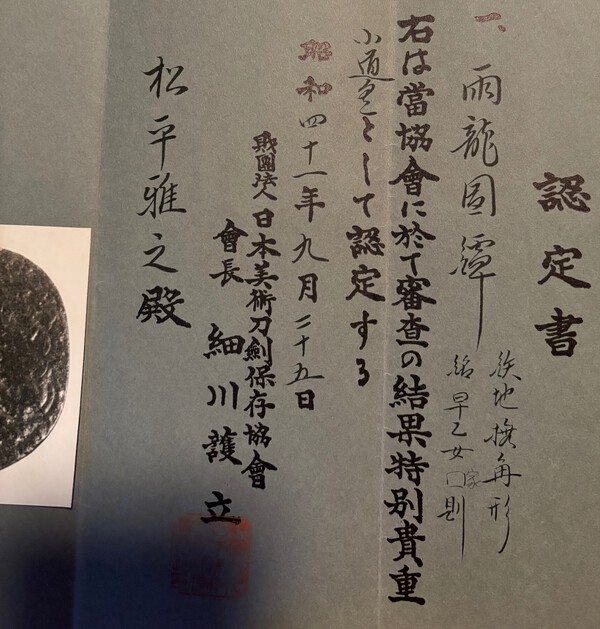 認定書
一、雨龍図鐔
鉄地撫角形
銘早乙女□家則
右は當協會に於て審査の結果特別貴重
小道具として認定する
昭和四十一年九月二十五日
財團法人日本美術刀劍保存協會
會長 細川護立
松平雅之殿